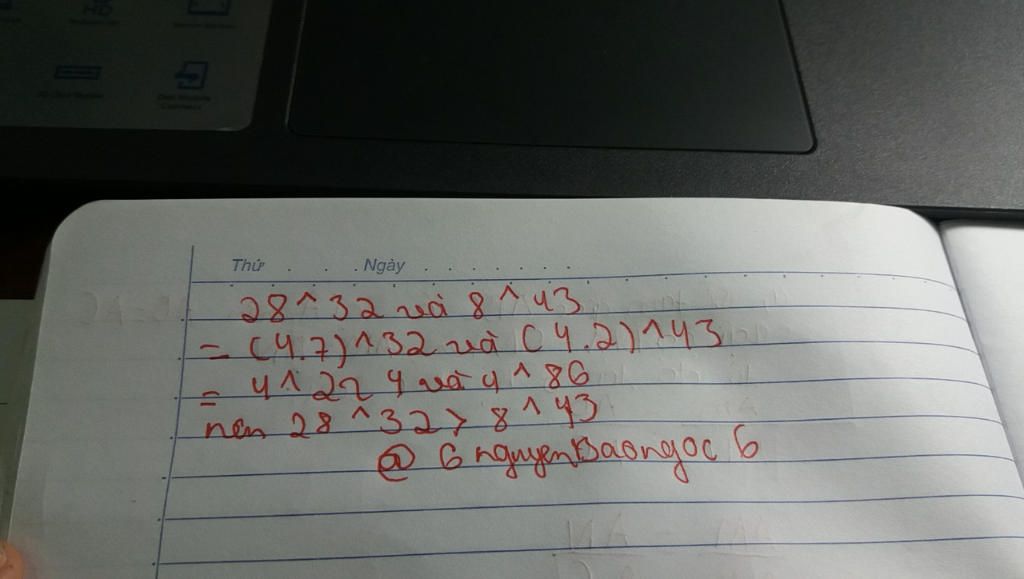 Thứ . . . Ngày . . . . . . .
28^32 và 8^43
= (4.7)^32 và (4.2)^43
= 4^224 và 4^86
nên 28^32 > 8^43
@ GnguyenBaongoc6